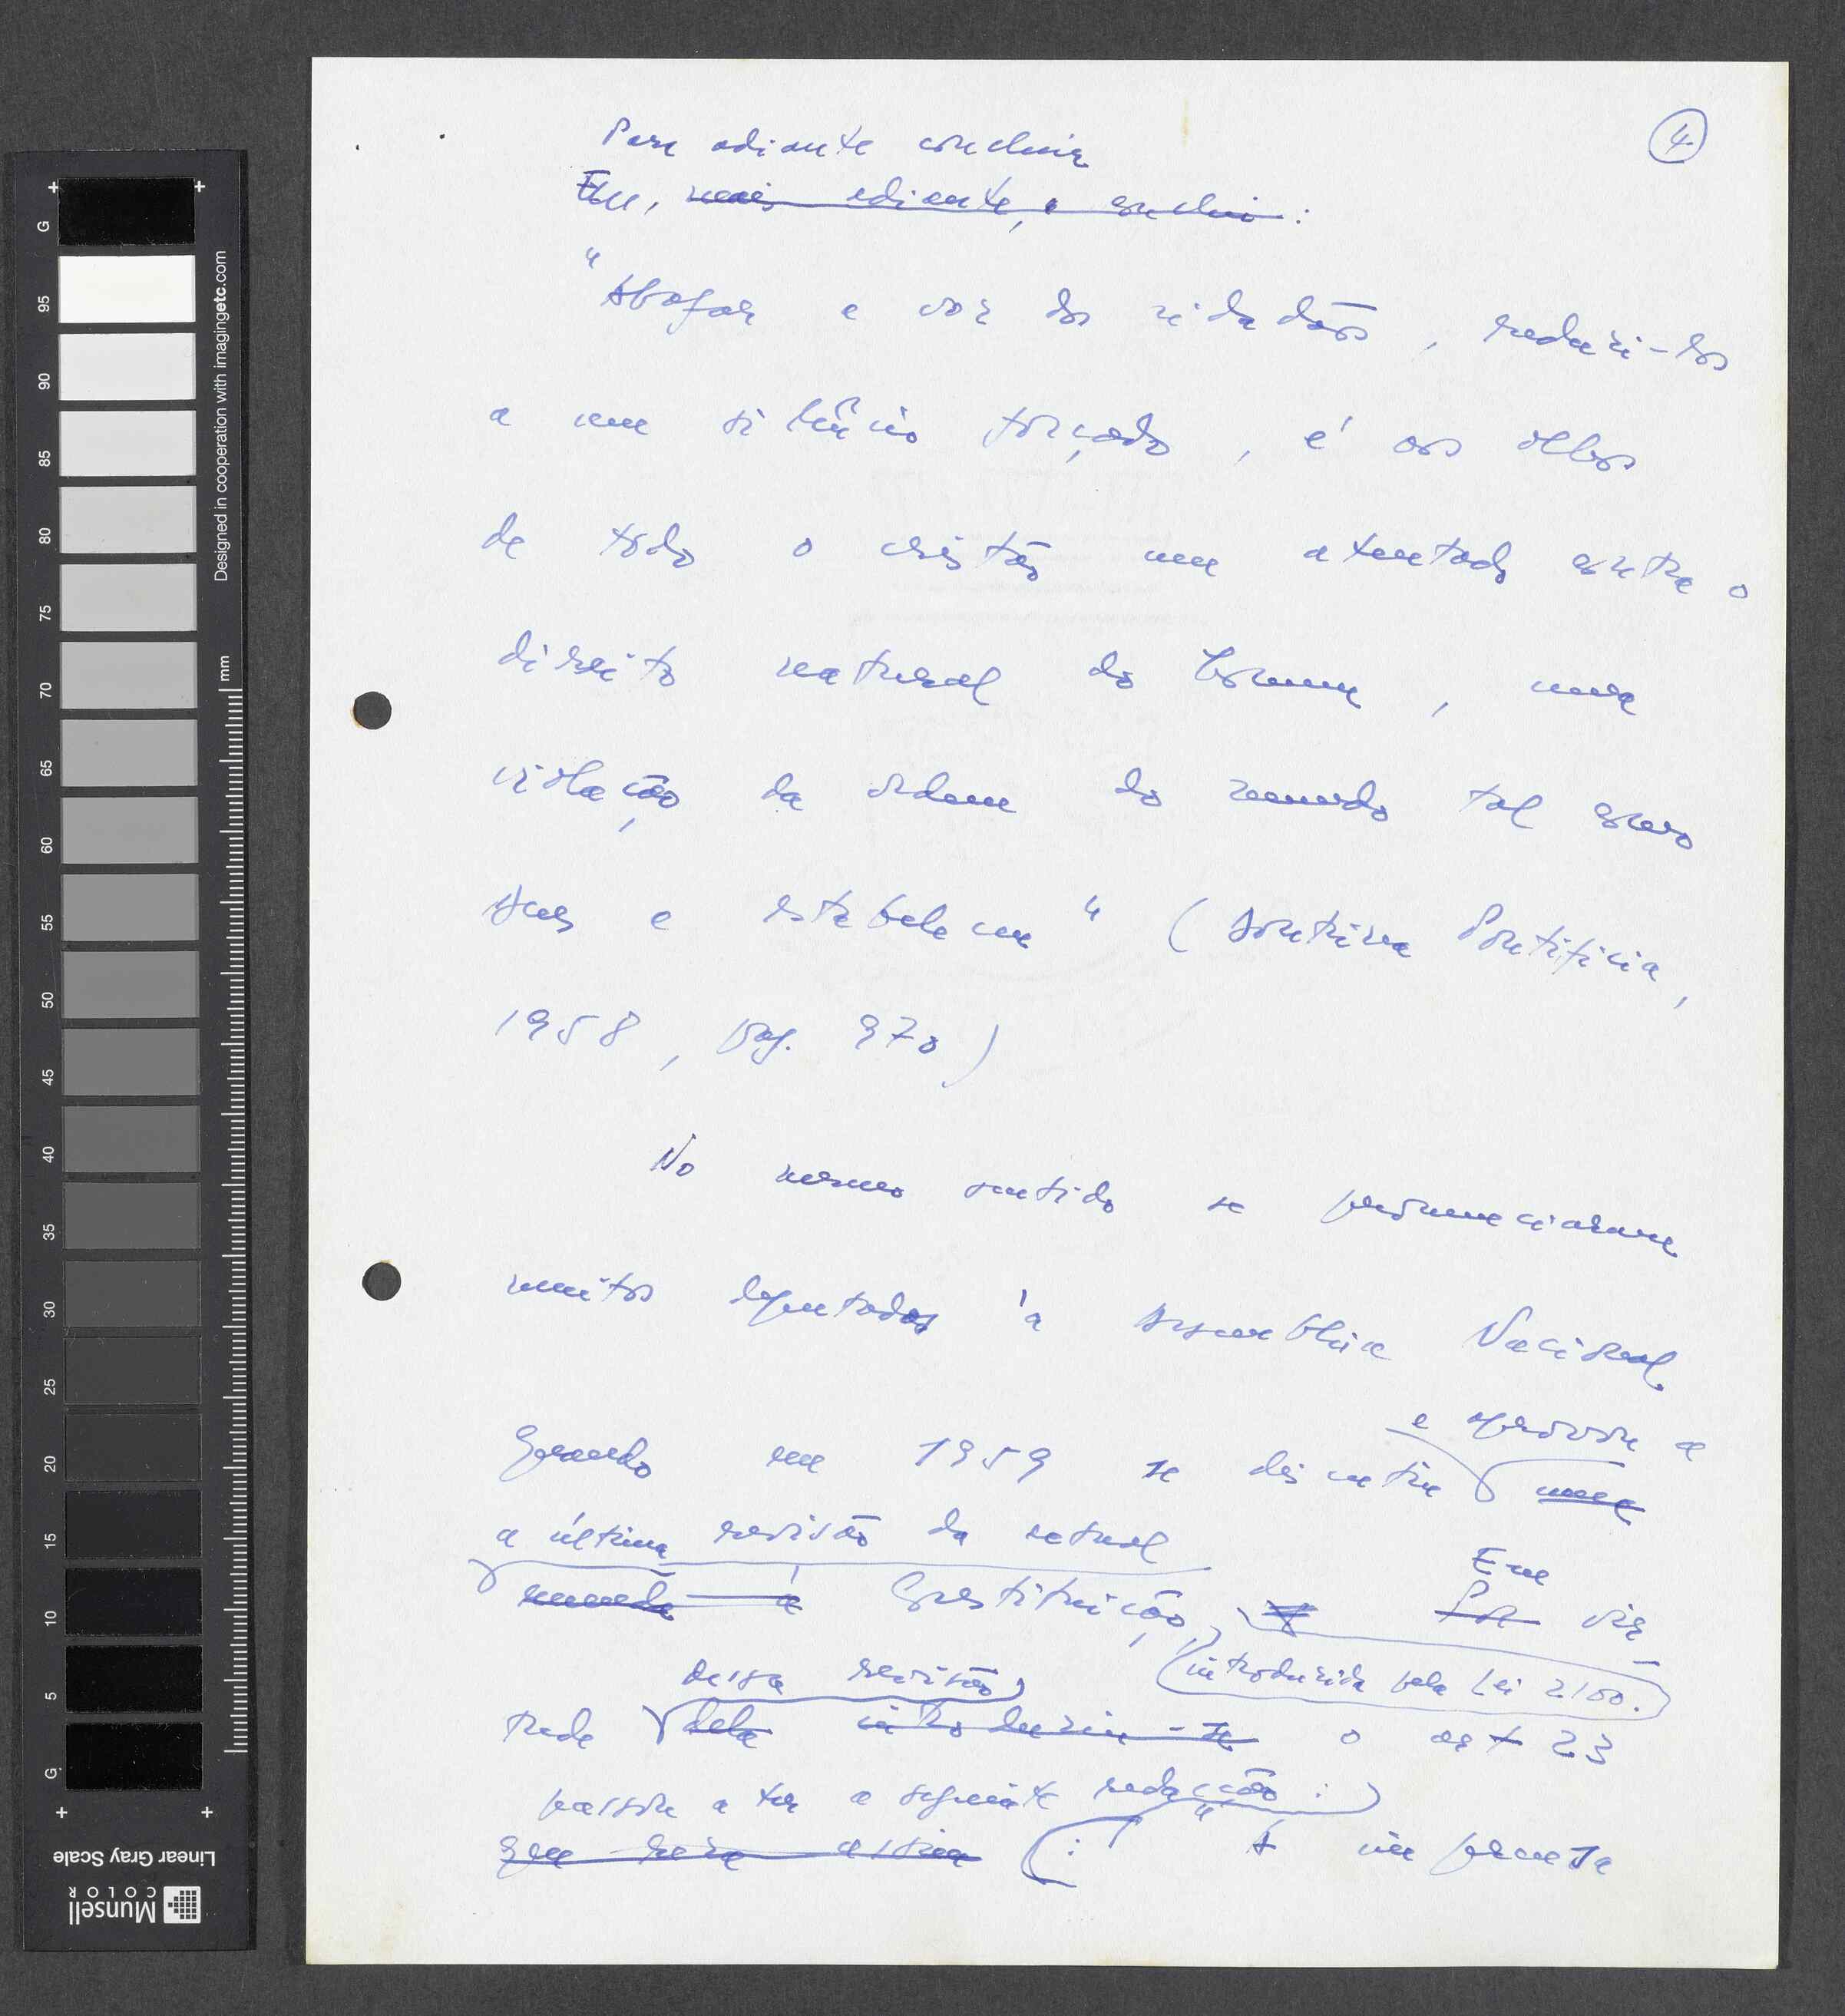 4.
Para adiante concluir
E, mais adiante, conclui :
"Abafar a voz dos cidadãos, reduzi-los
a um silêncio forçado, é aos olhos
de todo o cristão um atentado contra o
direito natural do homem, uma
violação da ordem do mundo tal como
Deus a estabeleceu" (Doutrina Pontifícia,
1958, pag. 970)
No mesmo sentido se pronunciaram
muitos deputados à Assembleia Nacional
e aprovou a
quando em 1959 se discutiu uma
a última revisão da actual
emenda à Constituição,
Em
Por vir
dessa revisão (introduzida pela Lei 2100.)
tude dela introduziu-se o art 23
passou a ter a seguinte redacção :
que reza assim : " A imprensa
G 95 90 85 80 75 70 65 60 55 50 45 40 35 30 25 20 15 10 5 G
Designed in cooperation with imagingetc.com
mm
Linear Gray Scale
Munsell
COLOR